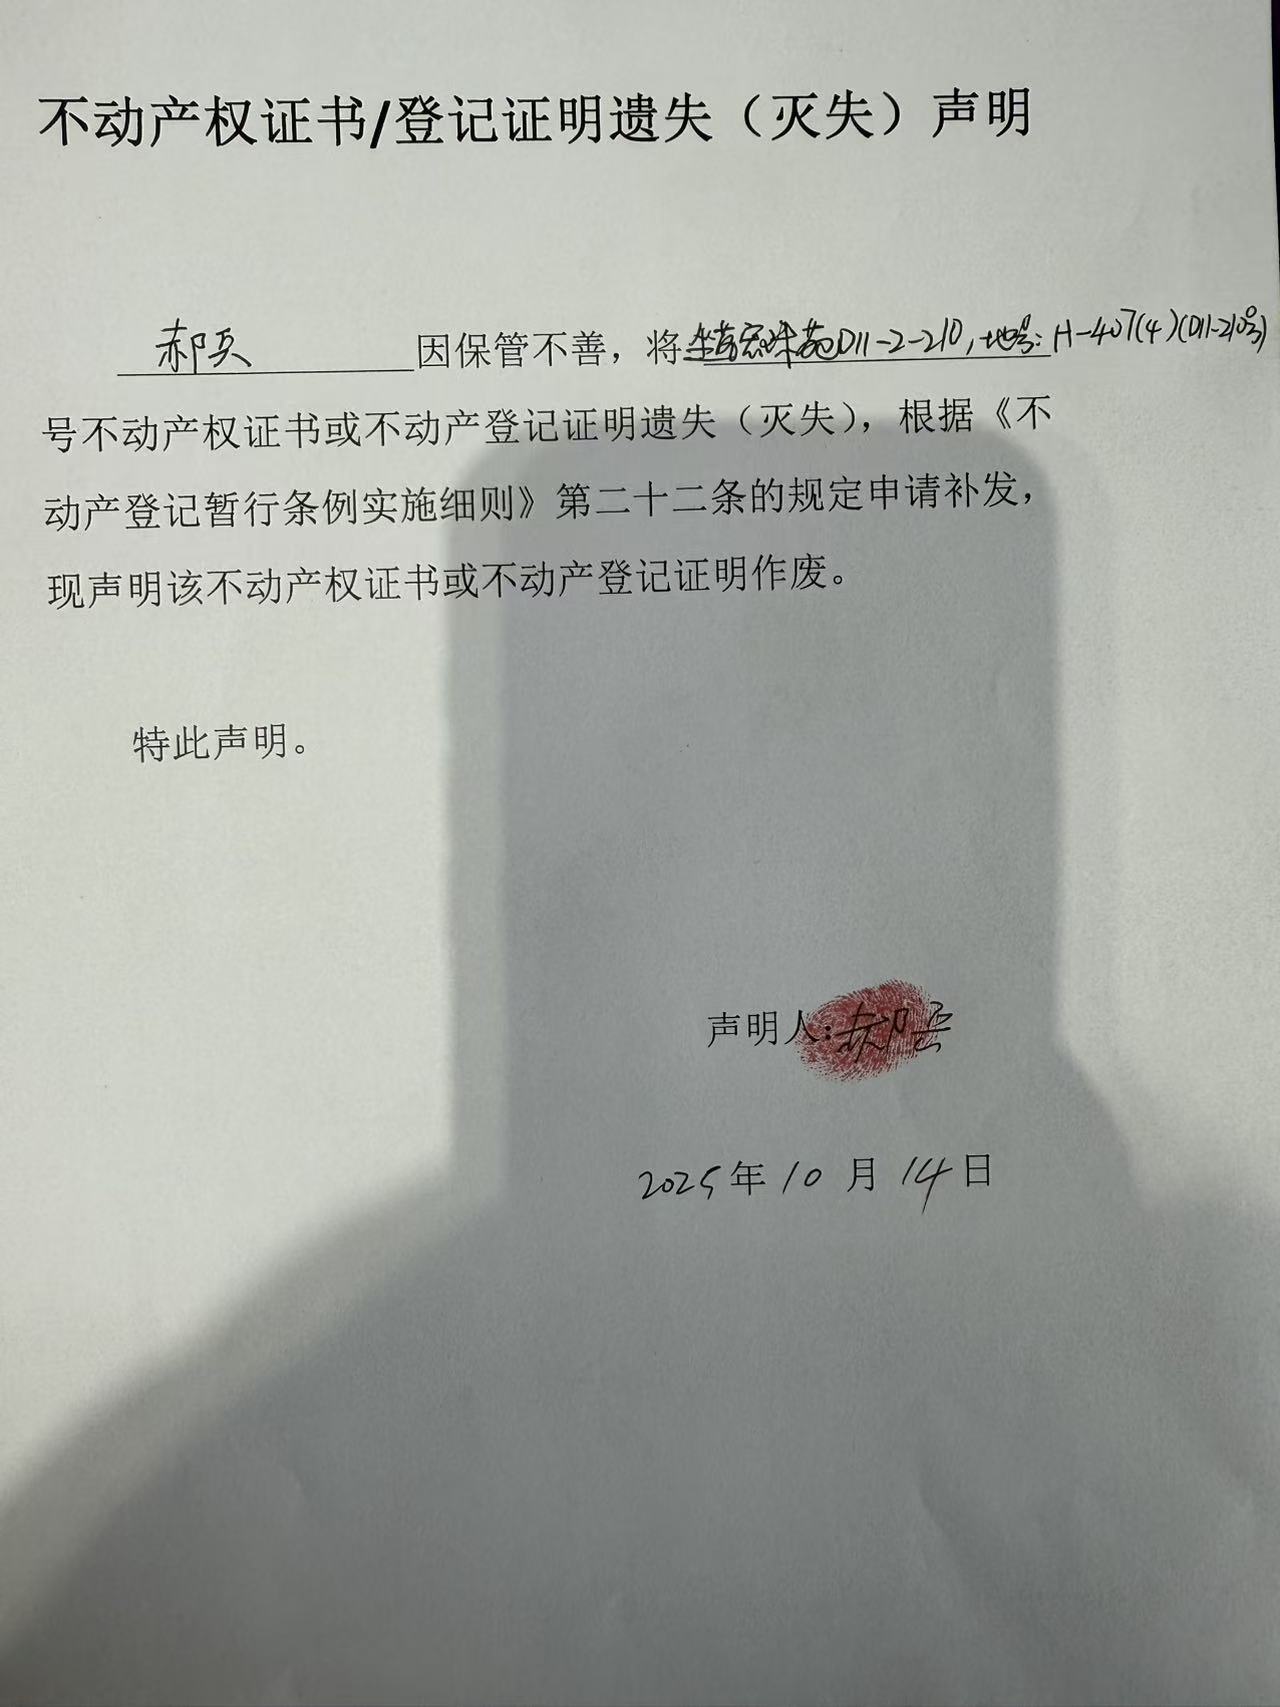 不动产权证书/登记证明遗失（灭失）声明
郝兵因保管不善，将坐落宏苑D11-2-210，地号：H-407(4)(D11-210号)
号不动产权证书或不动产登记证明遗失（灭失），根据《不
动产登记暂行条例实施细则》第二十二条的规定申请补发，
现声明该不动产权证书或不动产登记证明作废。
特此声明。
声明人：郝兵
2025年10月14日